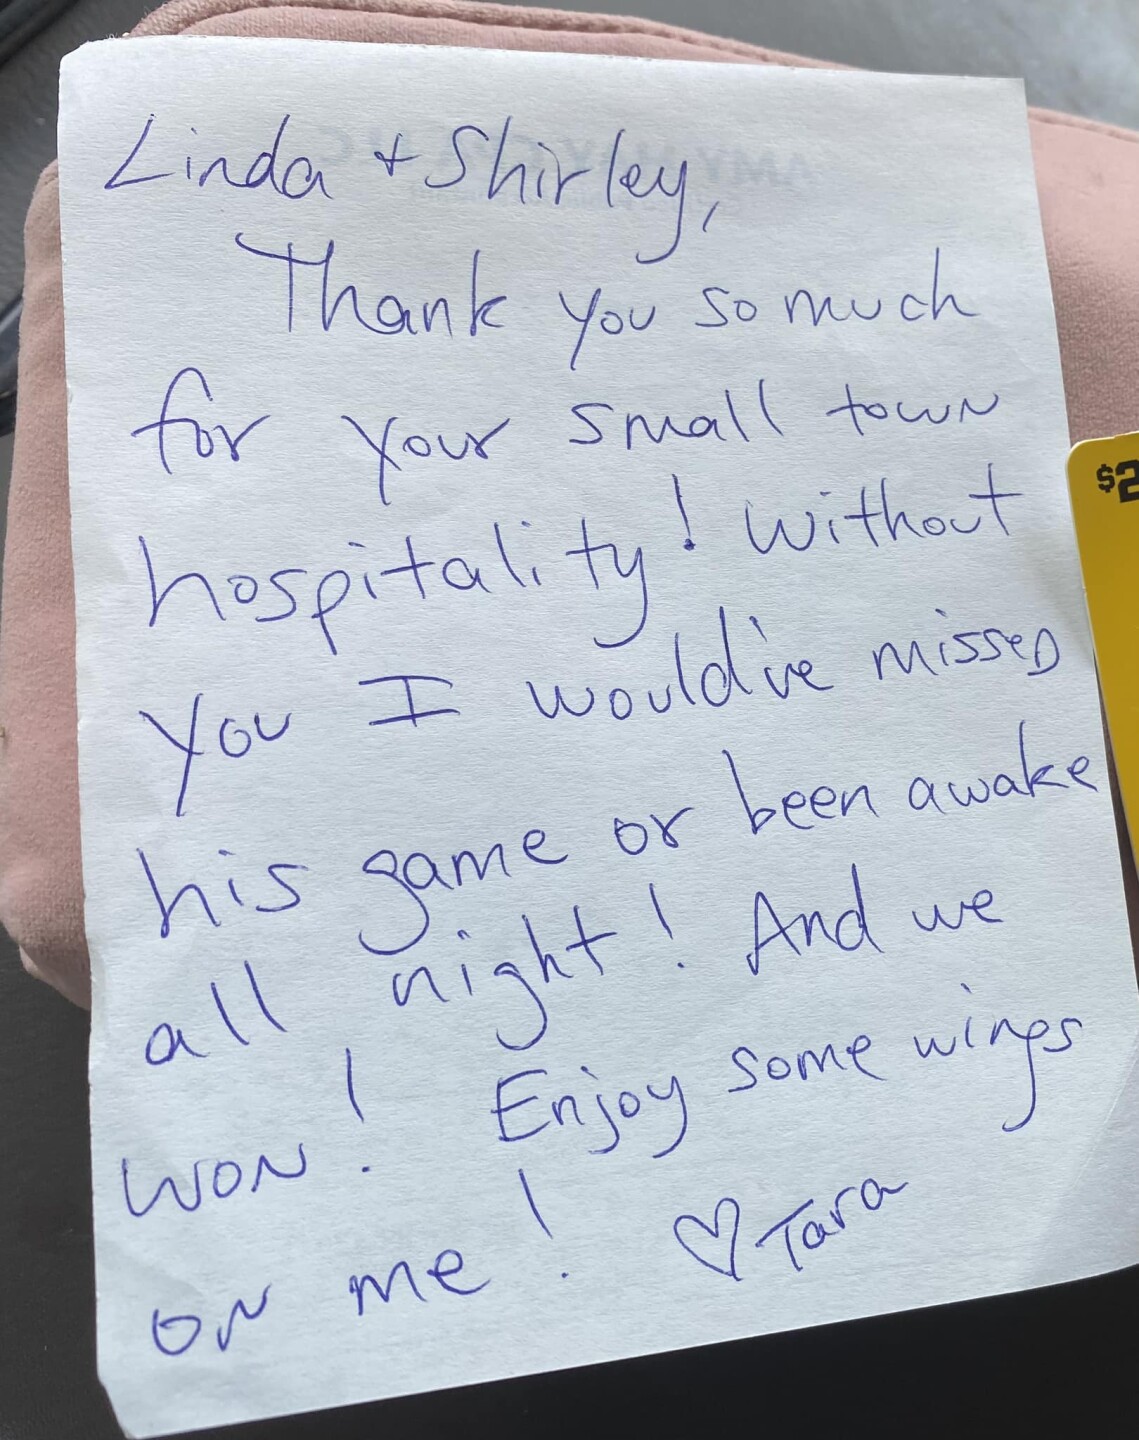 Linda + Shirley,
Thank you so much
for your small town
hospitality! Without
you I would've missed
his game or been awake
all night! And we
won! Enjoy some wings
on me! ♡ Tara
$2